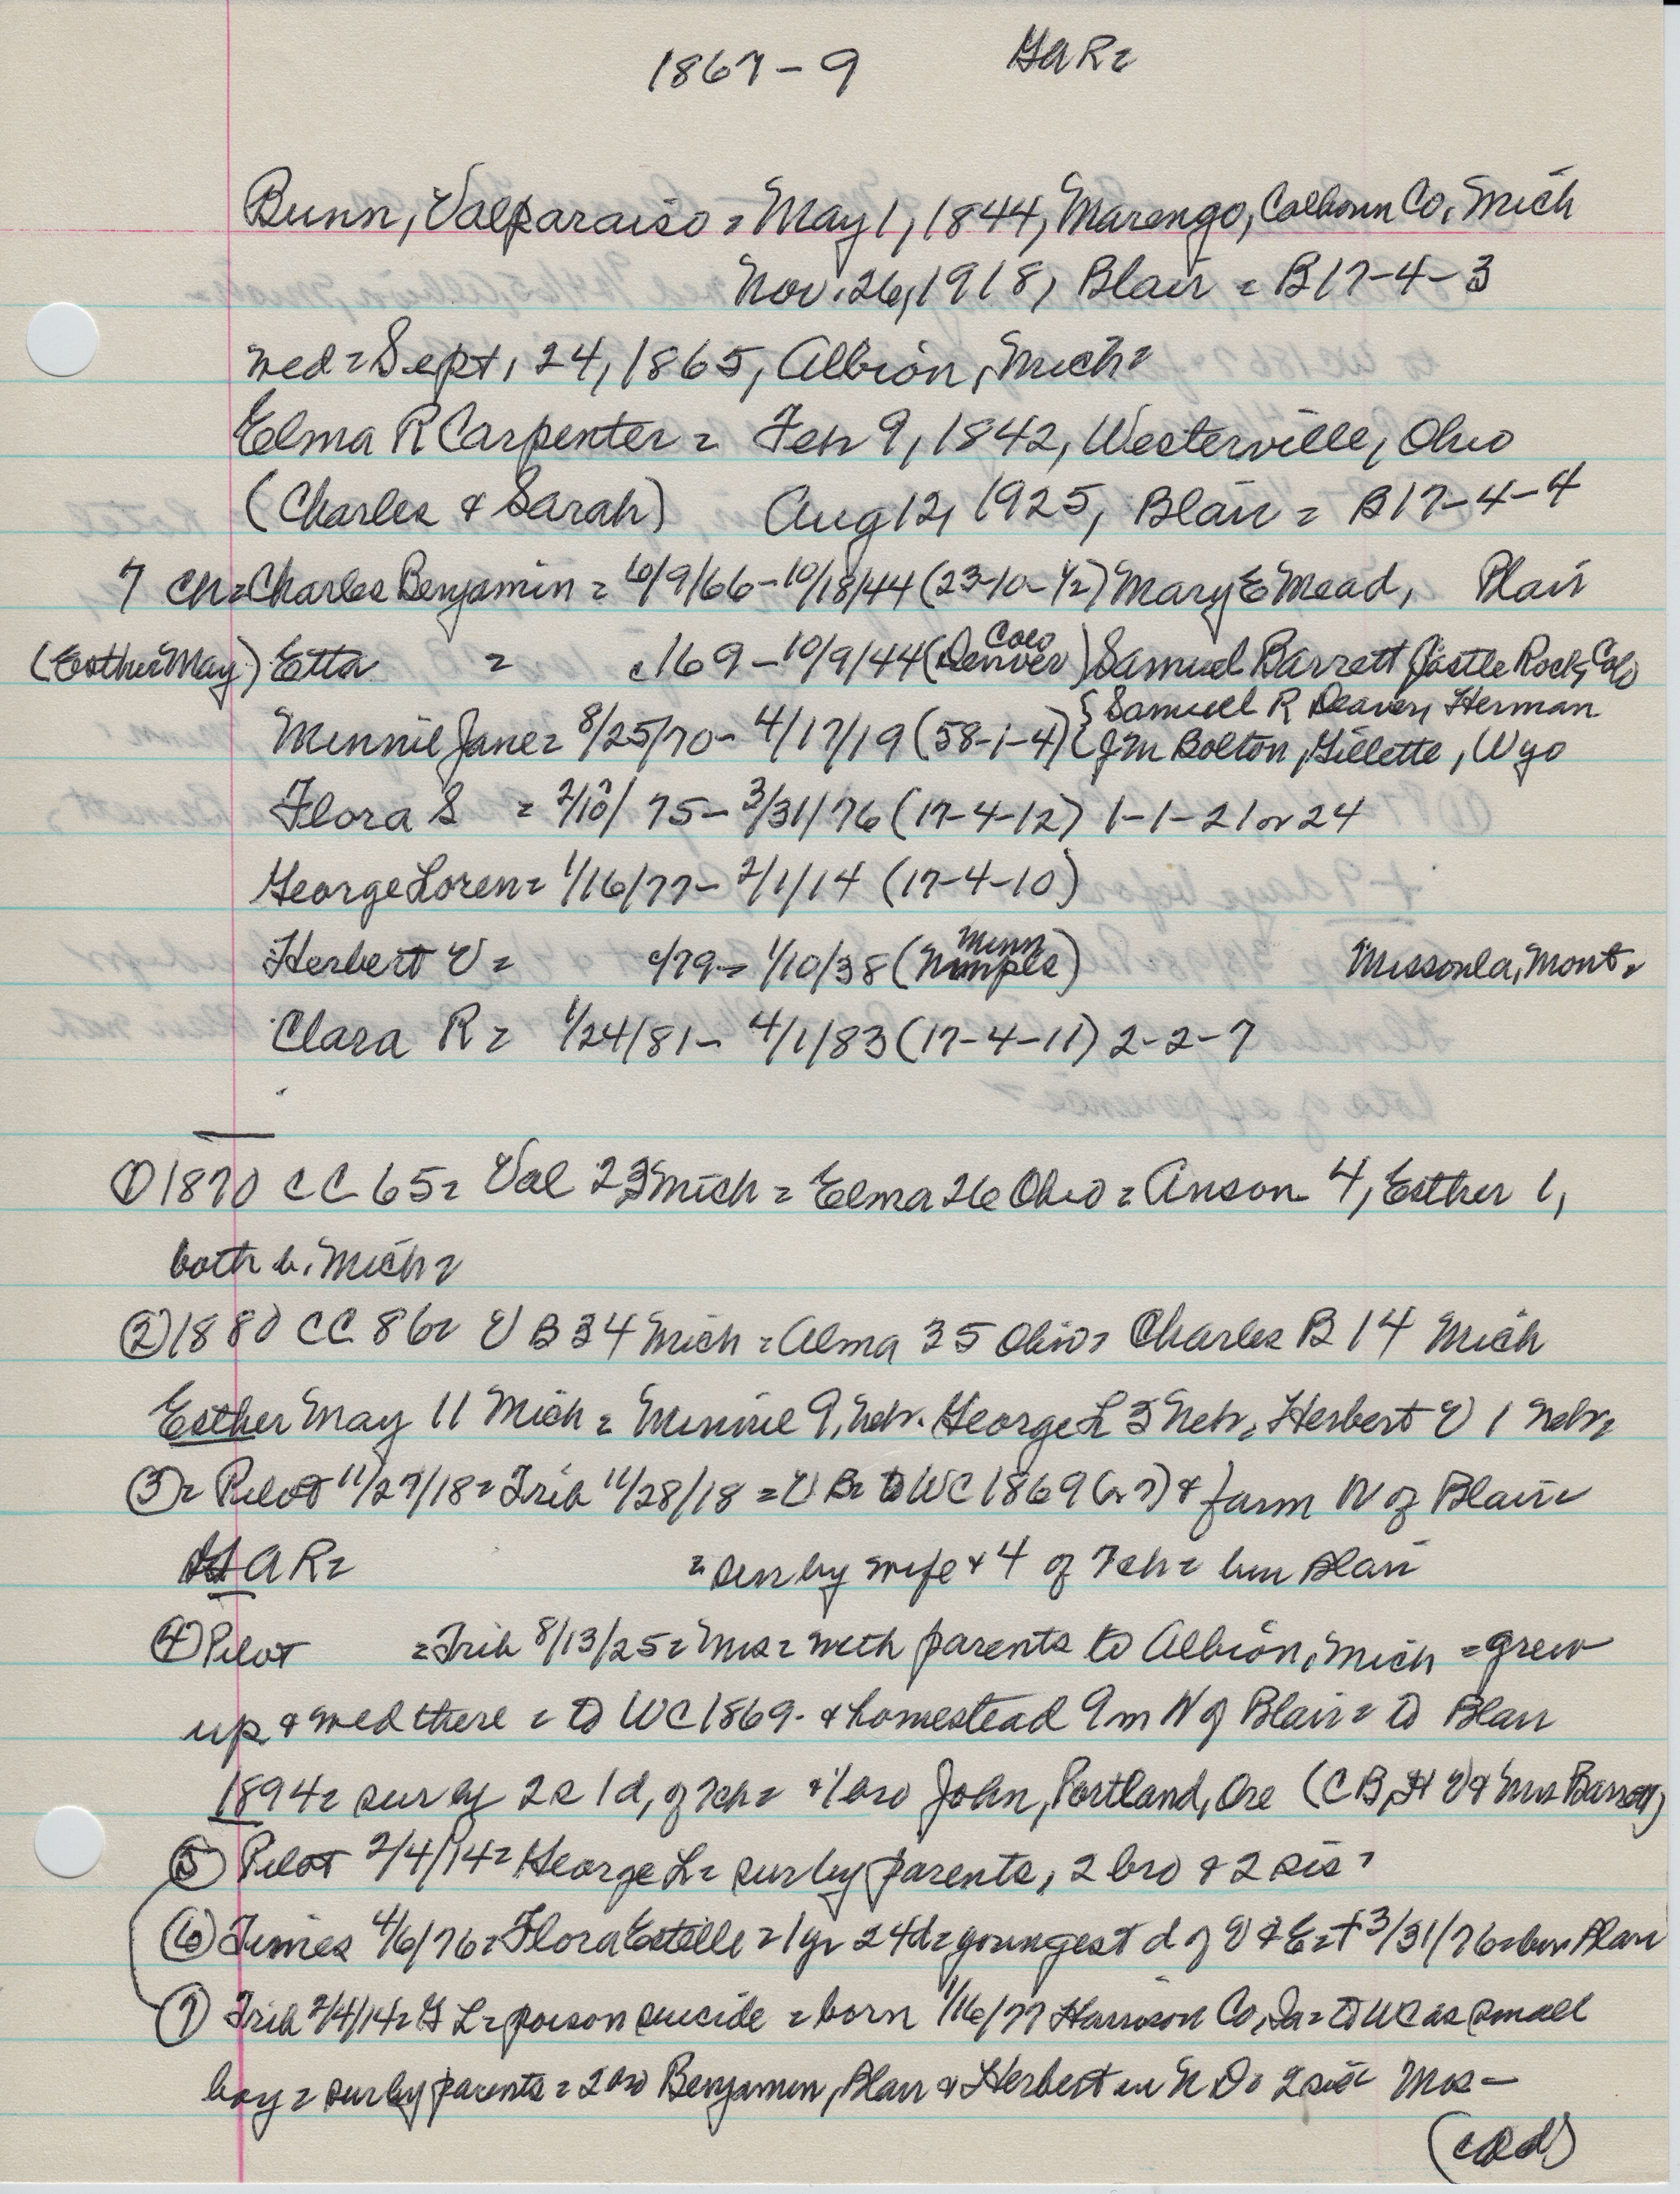 1867-9 GAR=
Bunn, Valparaiso = May 1, 1844, Marengo, Calhoun Co, Mich
Nov. 26, 1918, Blair = B17-4-3
wed = Sept, 24, 1865, Albion, Mich =
Elma R Carpenter = Feb 9, 1842, Westerville, Ohio
(Charles & Sarah) Aug 12, 1925, Blair = B17-4-4
7 ch = Charles Benjamin = 10/9/66 - 10/18/44 (23-10-1/2) Mary E Mead, Blair
(Esther May) Etta = c/69 - 10/9/44 (Denver Colo) Samuel Barrett Castle Rock, Colo
{ Samuel R Deaver, Herman
Minnie Jane = 8/25/70 - 4/17/19 (58-1-4) { J M Bolton, Gillette, Wyo
Flora S = 2/10?/75 - 3/31/76 (17-4-12) 1-1-21 or 24
George Loren = 1/16/77 - 2/1/14 (17-4-10)
Herbert V = c/79 = 1/10/38 (Minn Mnpls) Missoula, Mont =
Clara R = 1/24/81 - 4/1/83 (17-4-11) 2-2-7
① 1870 CC 65 = Val 23 Mich = Elma 26 Ohio = Anson 4, Esther 1,
both b. Mich =
② 1880 CC 86 = V B 34 Mich = Alma 35 Ohio = Charles B 14 Mich
Esther May 11 Mich = Minnie 9, Neb. George L 3 Neb, Herbert V 1 Neb =
③ = Pilot 11/27/18 = Trib 11/28/18 = V B = to WC 1869 (or 7) & farm N of Blair =
GAR = = sur by wife & 4 of 7 ch = bur Blair
④ Pilot = Trib 8/13/25 = Mrs = with parents to Albion, Mich = grew
up & wed there = to WC 1869 - & homestead 9 m N of Blair = to Blair
1894 = sur by 2 s 1 d, of 7 ch = & 1 bro John, Portland, Ore (C B, H V & Mrs Barrett)
⑤ Pilot 2/4/14 = George L = sur by parents, 2 bro & 2 sis =
⑥ Times 4/6/76 = Flora Estelle = 1 yr 24 d = youngest d of V & E = + 3/31/76 = bur Blair
⑦ Trib 2/4/14 = G L = poison suicide = born 1/16/77 Harrison Co, Ia = to WC as small
boy = sur by parents = 2 bro Benjamin, Blair & Herbert in N D = 2 sis = Mrs -